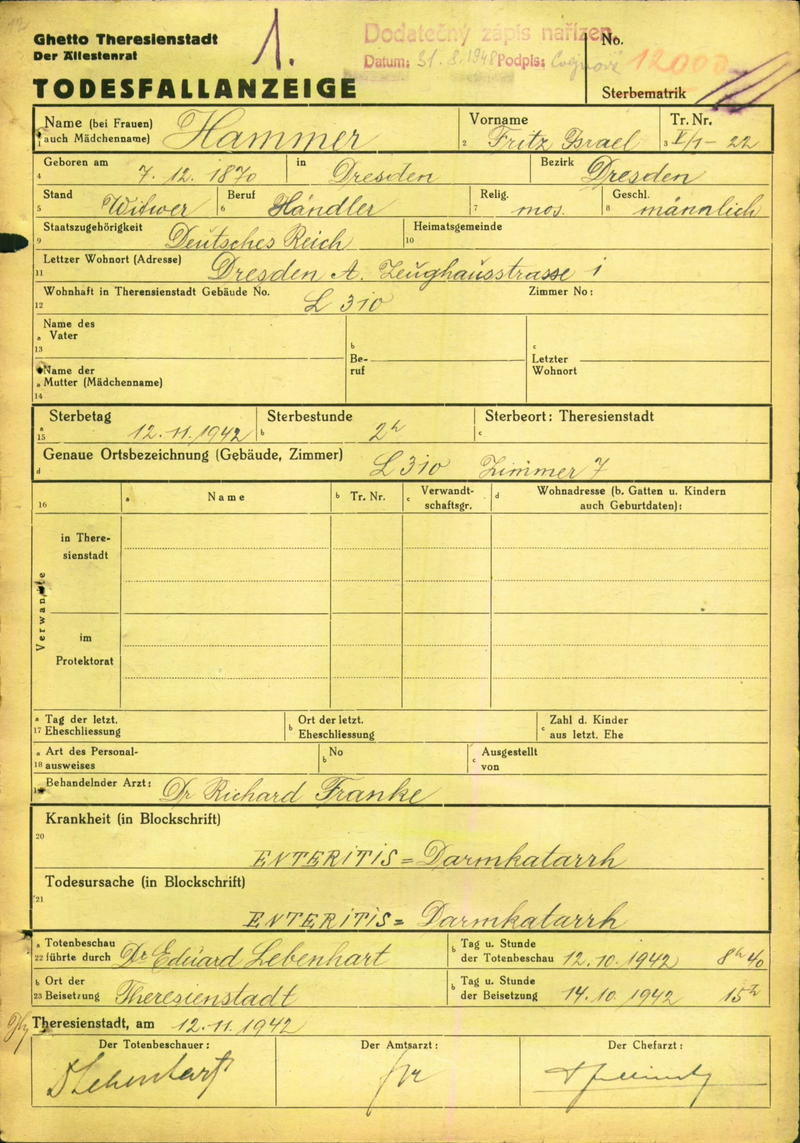 Ghetto Theresienstadt
Der Ältestenrat
TODESFALLANZEIGE
1.
Dodatečný zápis nařízen
Datum: 31. 8. 1948 Podpis:
No. 12000
Sterbematrik
Name (bei Frauen) auch Mädchenname) Hammer
1
Vorname
2 Fritz Israel
Tr. Nr.
3 V/1-22
Geboren am
4 7. 12. 1870
in Dresden
Bezirk Dresden
Stand
5 Witwer
Beruf
6 Händler
Relig.
7 mos.
Geschl.
8 männlich
Staatszugehörigkeit
9 Deutsches Reich
Heimatsgemeinde
10
Lettzer Wohnort (Adresse)
11 Dresden A. Zeughausstrasse 1
Wohnhaft in Therensienstadt Gebäude No.
12 L 310
Zimmer No:
Name des
a Vater
13
b
Be-
ruf
c
Letzter
Wohnort
Name der
a Mutter (Mädchenname)
14
Sterbetag
a
15 12.11.1942
Sterbestunde
b 2h
Sterbeort: Theresienstadt
c
Genaue Ortsbezeichnung (Gebäude, Zimmer)
d L 310 Zimmer 7
16
a Name
b Tr. Nr.
c Verwandt-
schaftsgr.
d Wohnadresse (b. Gatten u. Kindern
auch Geburtdaten):
Verwandte
in There-
sienstadt
im
Protektorat
a Tag der letzt.
17 Eheschliessung
b Ort der letzt.
Eheschliessung
c Zahl d. Kinder
aus letzt. Ehe
a Art des Personal-
18 ausweises
b No
c Ausgestellt
von
Behandelnder Arzt: Dr Richard Franke
Krankheit (in Blockschrift)
20
ENTERITIS = Darmkatarrh
Todesursache (in Blockschrift)
21
ENTERITIS = Darmkatarrh
a Totenbeschau
22 führte durch Dr Eduard Lebenhart
b Tag u. Stunde
der Totenbeschau 12.10.1942 8h 40
b Ort der
23 Beisetzung Theresienstadt
b Tag u. Stunde
der Beisetzung 14.10.1942 15h
Theresienstadt, am 12.11.1942
Der Totenbeschauer:
Der Amtsarzt:
Der Chefarzt: